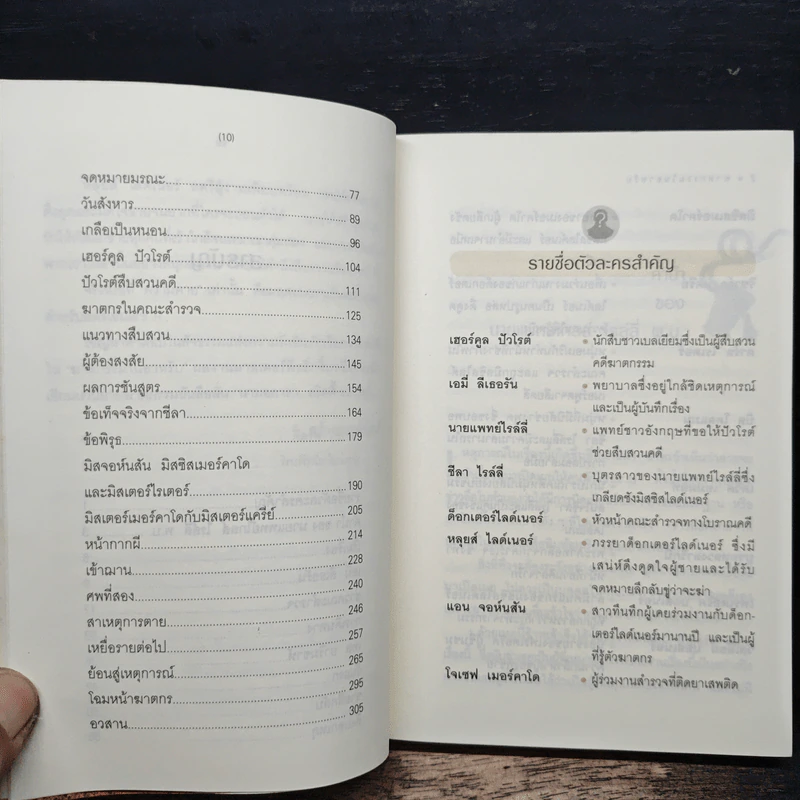 (10)
จดหมายมรณะ....................77
วันสังหาร....................89
เกลือเป็นหนอน....................96
เฮอร์คูล ปัวโรต์....................104
ปัวโรต์สืบสวนคดี....................111
ฆาตกรในคณะสำรวจ....................125
แนวทางสืบสวน....................134
ผู้ต้องสงสัย....................145
ผลการชันสูตร....................154
ข้อเท็จจริงจากชีลา....................164
ข้อพิรุธ....................179
มิสจอห์นสัน มิสซิสเมอร์คาโด
และมิสเตอร์ไรเตอร์....................190
มิสเตอร์เมอร์คาโดกับมิสเตอร์แครีย์....................205
หน้ากากผี....................214
เข้าฌาน....................228
ศพที่สอง....................240
สาเหตุการตาย....................246
เหยื่อรายต่อไป....................257
ย้อนสู่เหตุการณ์....................265
โฉมหน้าฆาตกร....................295
อวสาน....................305
รายชื่อตัวละครสำคัญ
เฮอร์คูล ปัวโรต์ • นักสืบชาวเบลเยียมซึ่งเป็นผู้สืบสวน
คดีฆาตกรรม
เอมี่ ลีเธอรัน • พยาบาลซึ่งอยู่ใกล้ชิดเหตุการณ์
และเป็นผู้บันทึกเรื่อง
นายแพทย์ไรล์ลี่ • แพทย์ชาวอังกฤษที่ขอให้ปัวโรต์
ช่วยสืบสวนคดี
ชีลา ไรล์ลี่ • บุตรสาวของนายแพทย์ไรล์ลี่ซึ่ง
เกลียดชังมิสซิสไลด์เนอร์
ด็อกเตอร์ไลด์เนอร์ • หัวหน้าคณะสำรวจทางโบราณคดี
หลุยส์ ไลด์เนอร์ • ภรรยาด็อกเตอร์ไลด์เนอร์ ซึ่งมี
เสน่ห์ดึงดูดใจผู้ชายและได้รับ
จดหมายลึกลับขู่ว่าจะฆ่า
แอน จอห์นสัน • สาวทึนทึกผู้เคยร่วมงานกับด็อก-
เตอร์ไลด์เนอร์มานานปี และเป็นผู้
ที่รู้ตัวฆาตกร
โจเซฟ เมอร์คาโด • ผู้ร่วมงานสำรวจที่ติดยาเสพติด